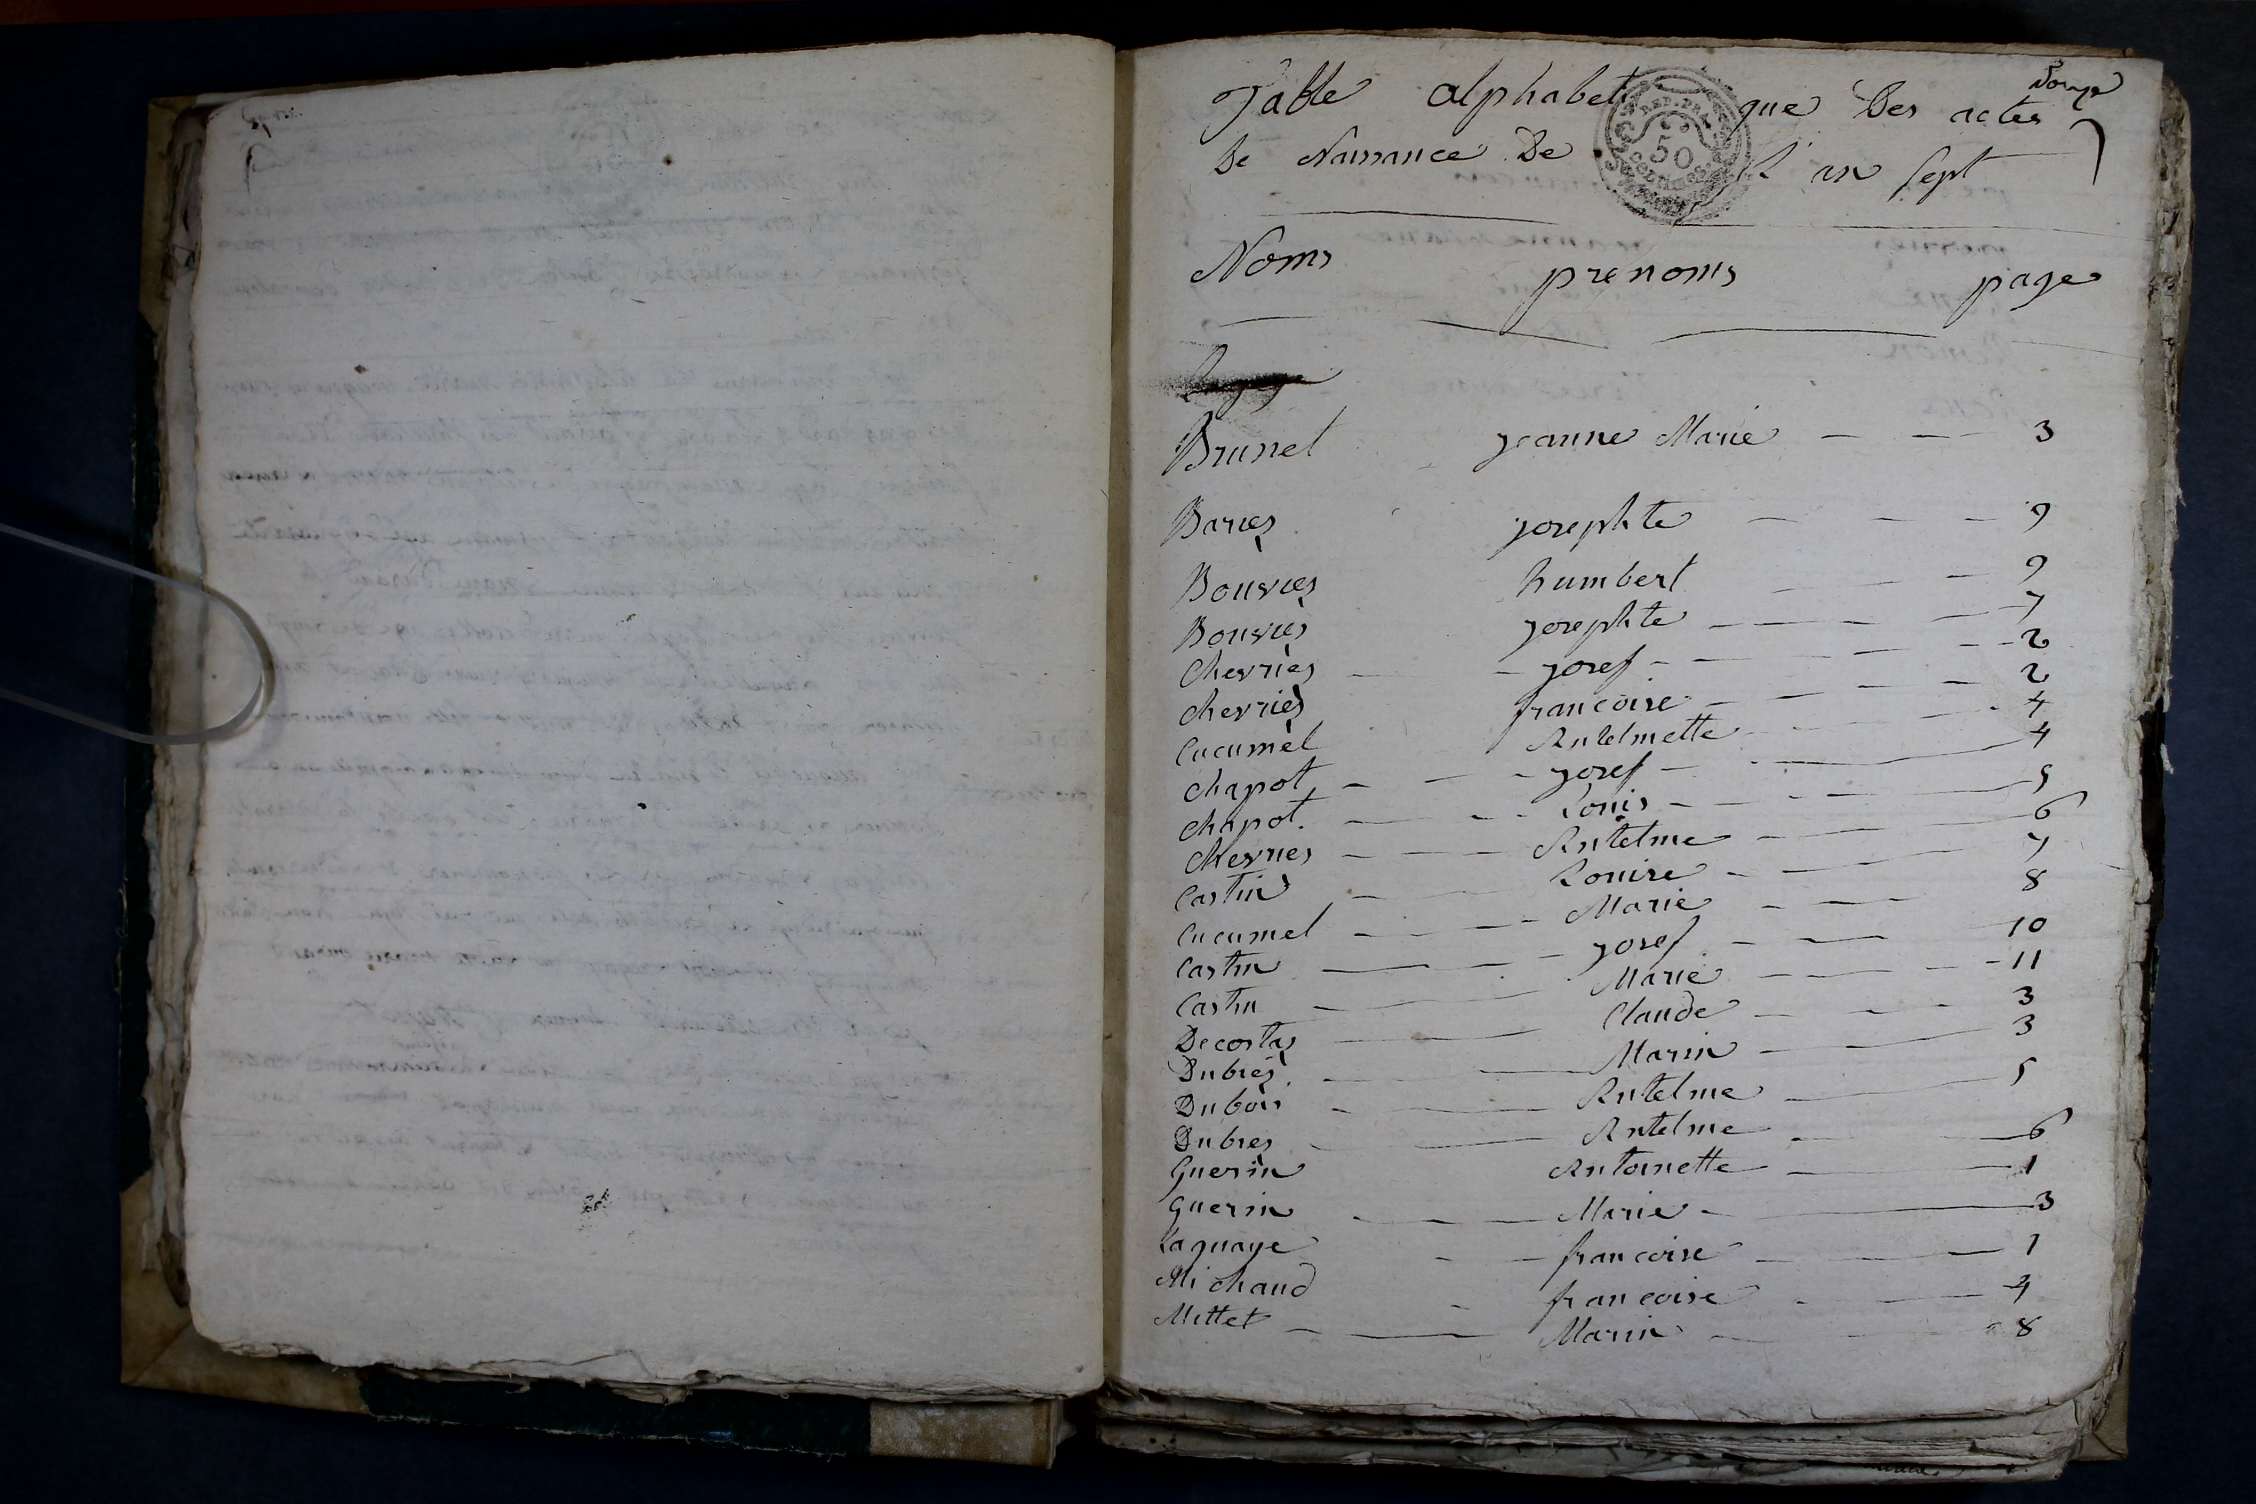 Douze
Table alphabetique Des actes
De Naissance De L'an sept
REP. FRA.
50
CENTIMES
Noms prenoms page
Brunet jeanne Marie 3
Bariès josephte 9
Bouvier humbert 9
Bouviès josephte 7
Chevriès josef 2
Chevriès francoise 2
Cucumel Antelmette 4
Chapot josef 4
Chapot Louis 5
Chevriès Antelme 6
Castin Louise 7
Cucumel Marie 8
Castin josef 10
Castin Marie 11
Decostas Claude 3
Dubiès Marin 3
Dubois Antelme 5
Dubies Antelme 6
Guerin Antoinette 1
Guerin Marie 3
Laguaye francoise 1
Michaud francoise 4
Mittet Marin 8